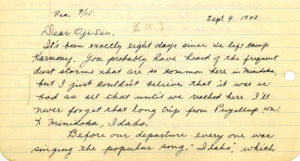 Rec. 9/15
Sept. 9, 1942
Dear Oji-San,
It's been exactly eight days since we left camp
Harmony. You probably have heard of the frequent
dust storms that are so common here in Minidoka,
but I just couldn't believe that it was as
bad as all that until we reached here. I'll
never forget that long trip from Puyallup
to Minidoka, Idaho.
Before our departure every one was
singing the popular song, "Idaho", which